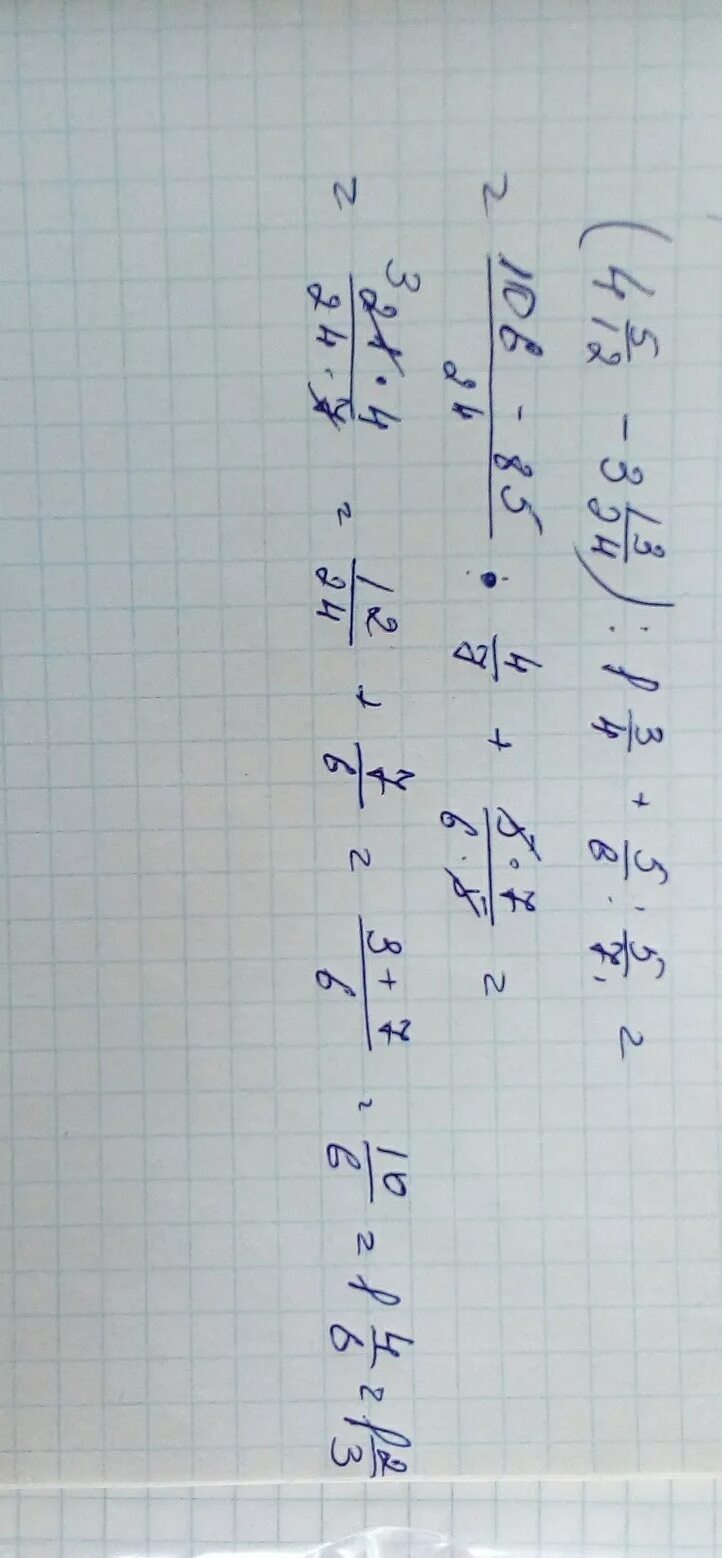 (4 5/12 - 3 13/24) : 1 3/4 + 5/6 : 5/7 =
= (106 - 85)/24 · 4/7 + (5 · 7)/(6 · 5) =
= 3 (21 · 4)/(24 · 7) = 12/24 + 7/6 = (3 + 7)/6 = 10/6 = 1 4/6 = 1 2/3